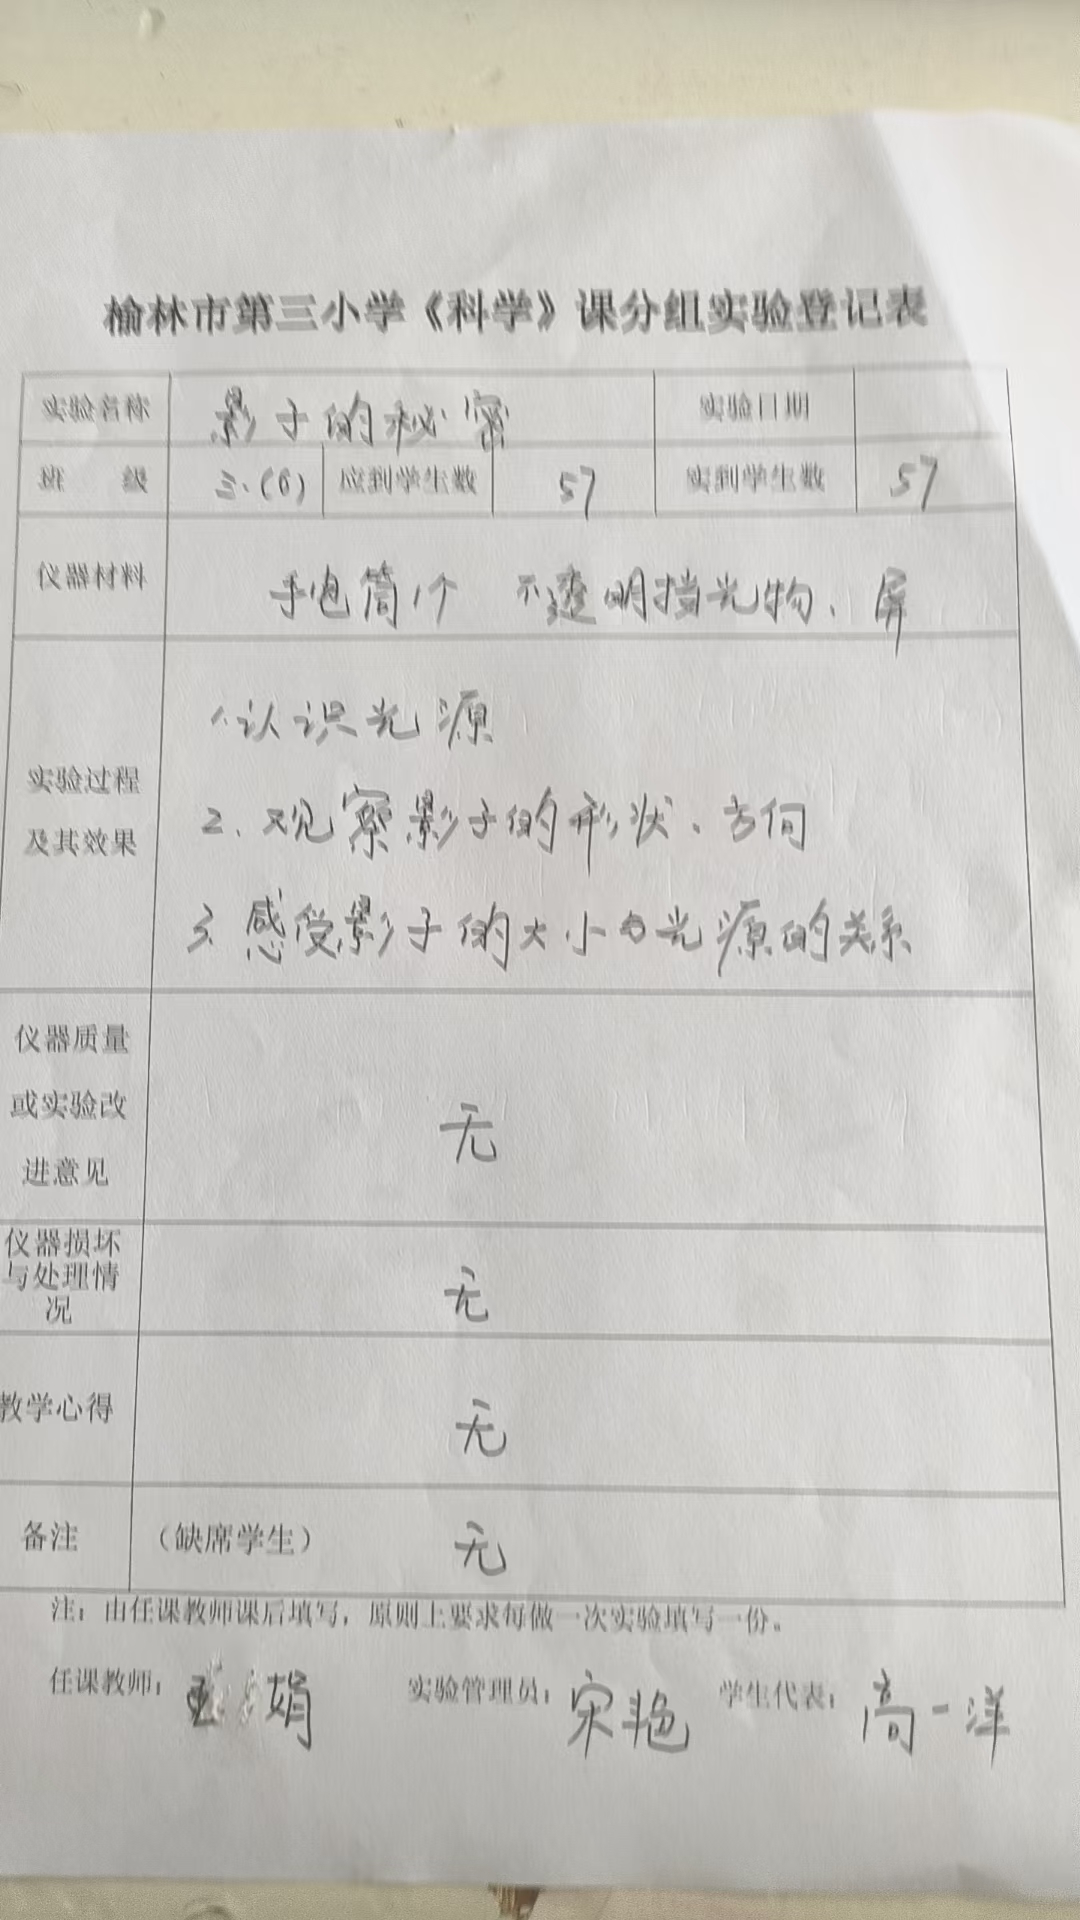 榆林市第三小学《科学》课分组实验登记表
实验名称 影子的秘密 实验日期
班 级 三.(6) 应到学生数 57 实到学生数 57
仪器材料 手电筒1个 不透明挡光物、屏
1.认识光源
实验过程
2、观察影子的形状、方向
及其效果
3、感受影子的大小与光源的关系
仪器质量
或实验改
无
进意见
仪器损坏
与处理情
无
况
教学心得 无
备注 (缺席学生) 无
注:由任课教师课后填写,原则上要求每做一次实验填写一份。
任课教师: 娟 实验管理员: 宋艳 学生代表: 高一洋